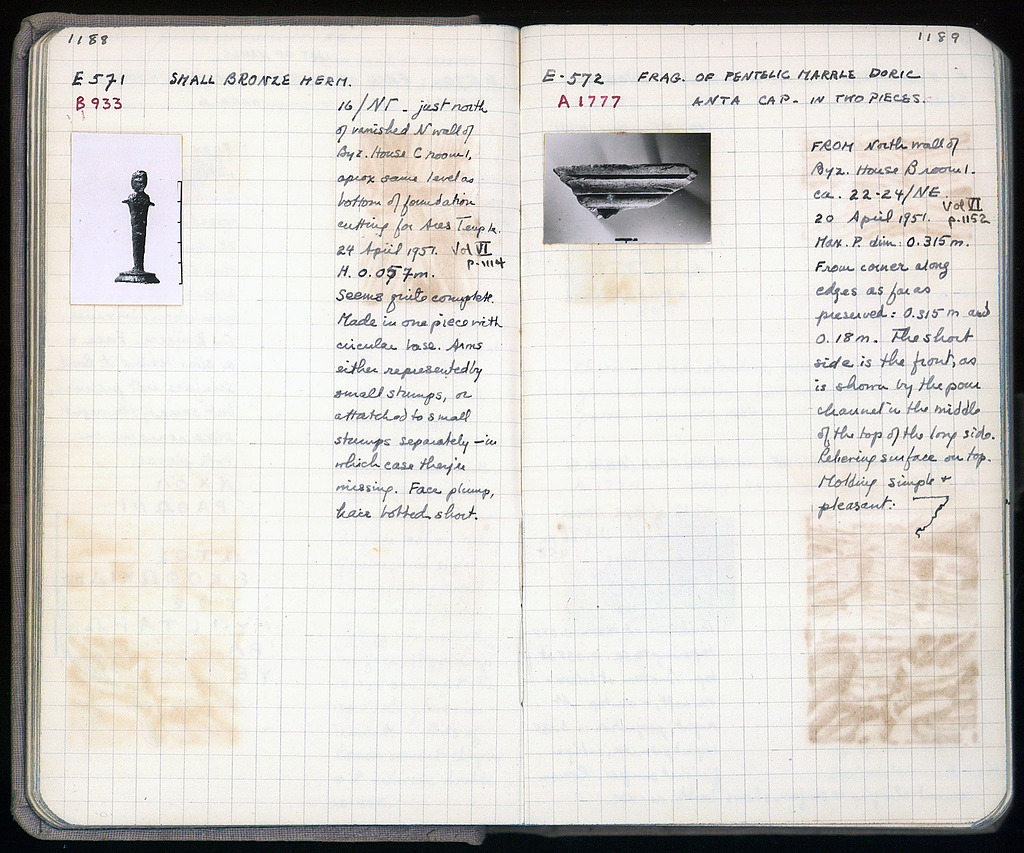 1188
E 571 SMALL BRONZE HERM.
B 933
16/ΝΓ - just north
of vanished N wall of
Byz. House C room 1,
aprox same level as
bottom of foundation
cutting for Ares Temple.
24 April 1951. Vol VI
p. 1114
H. 0.057m.
Seems quite complete.
Made in one piece with
circular base. Arms
either represented by
small stumps, or
attatched to small
stumps separately – in
which case they're
missing. Face plump,
hair bobbed short.
1189
E-572 FRAG. OF PENTELIC MARBLE DORIC
A 1777 ANTA CAP. IN TWO PIECES.
FROM North wall of
Byz. House B room 1.
ca. 22-24/ΝΕ.
Vol VI
20 April 1951. p. 1152
Max. P. dim: 0.315m.
From corner along
edges as far as
preserved: 0.315 m and
0.18m. The short
side is the front, as
is shown by the pour
channel in the middle
of the top of the long side.
Relieving surface on top.
Molding simple +
pleasant: